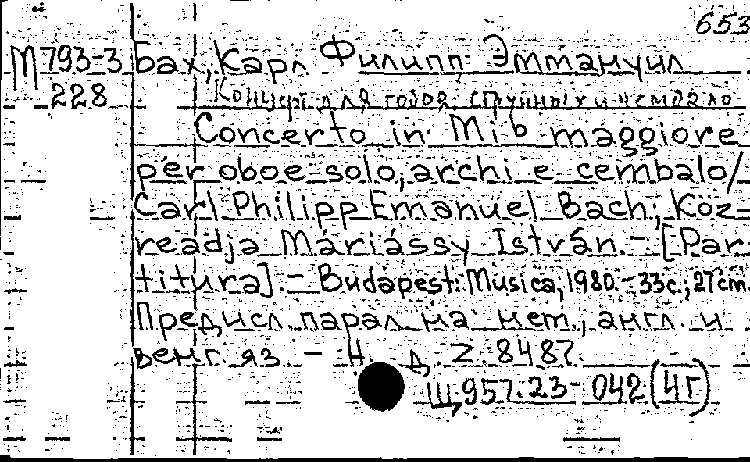 653
М793-3 Бах, Карл Филипп Эммануил
228 Концерт для гобоя, струнных и чембало
Concerto in Mi b maggiore
per oboe solo, archi e cembalo/
Carl Philipp Emanuel Bach; Köz-
readja Máriássy István. - [Par
titura]. - Budapest: Musica, 1980. - 33с.; 27cm.
Предисл. парал. на нем., англ. и
венг. яз. - Н. д. Z. 8487.
Щ957.23-042(4Г)